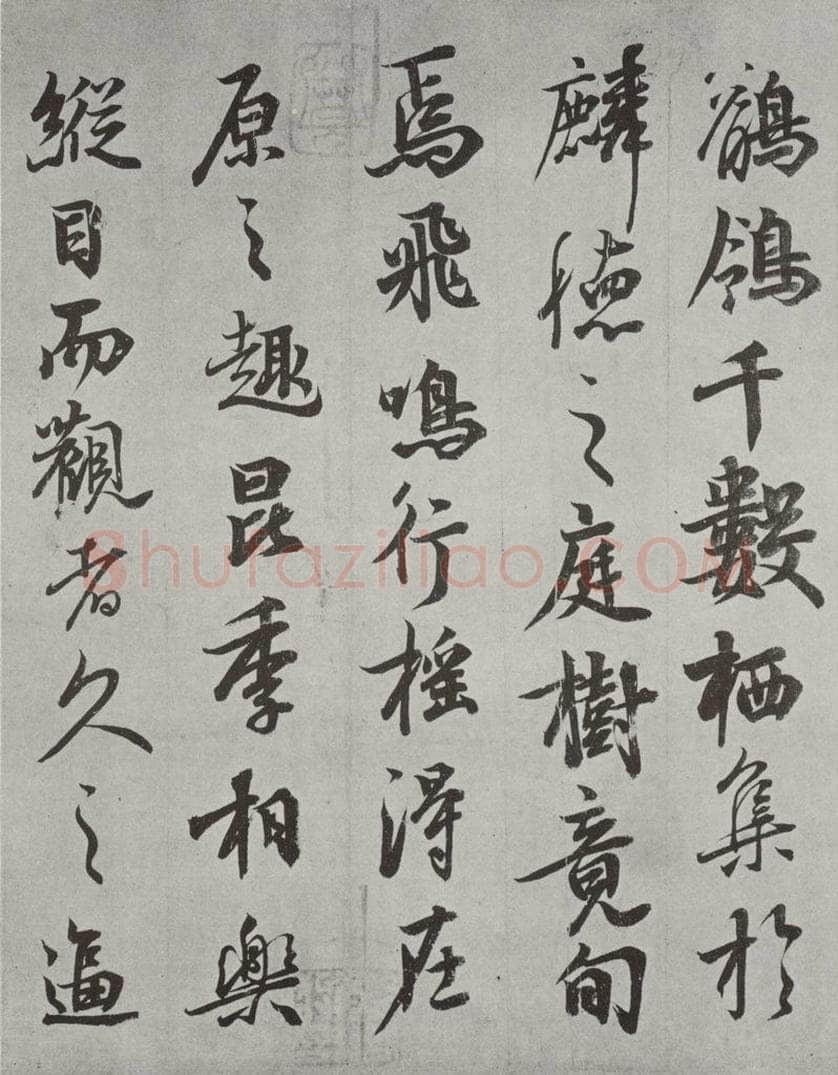 鶺鴒千數栖集於
麟德之庭樹竟旬
焉飛鳴行摇得在
原之趣昆季相樂
縱目而觀者久之逼
Shufaziliao.COM